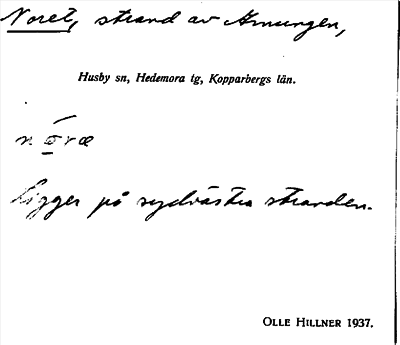 Noret, strand av Amungen,
Husby sn, Hedemora tg, Kopparbergs län.
nó̱ræ
Ligger på sydvästra stranden.
OLLE HILLNER 1937.